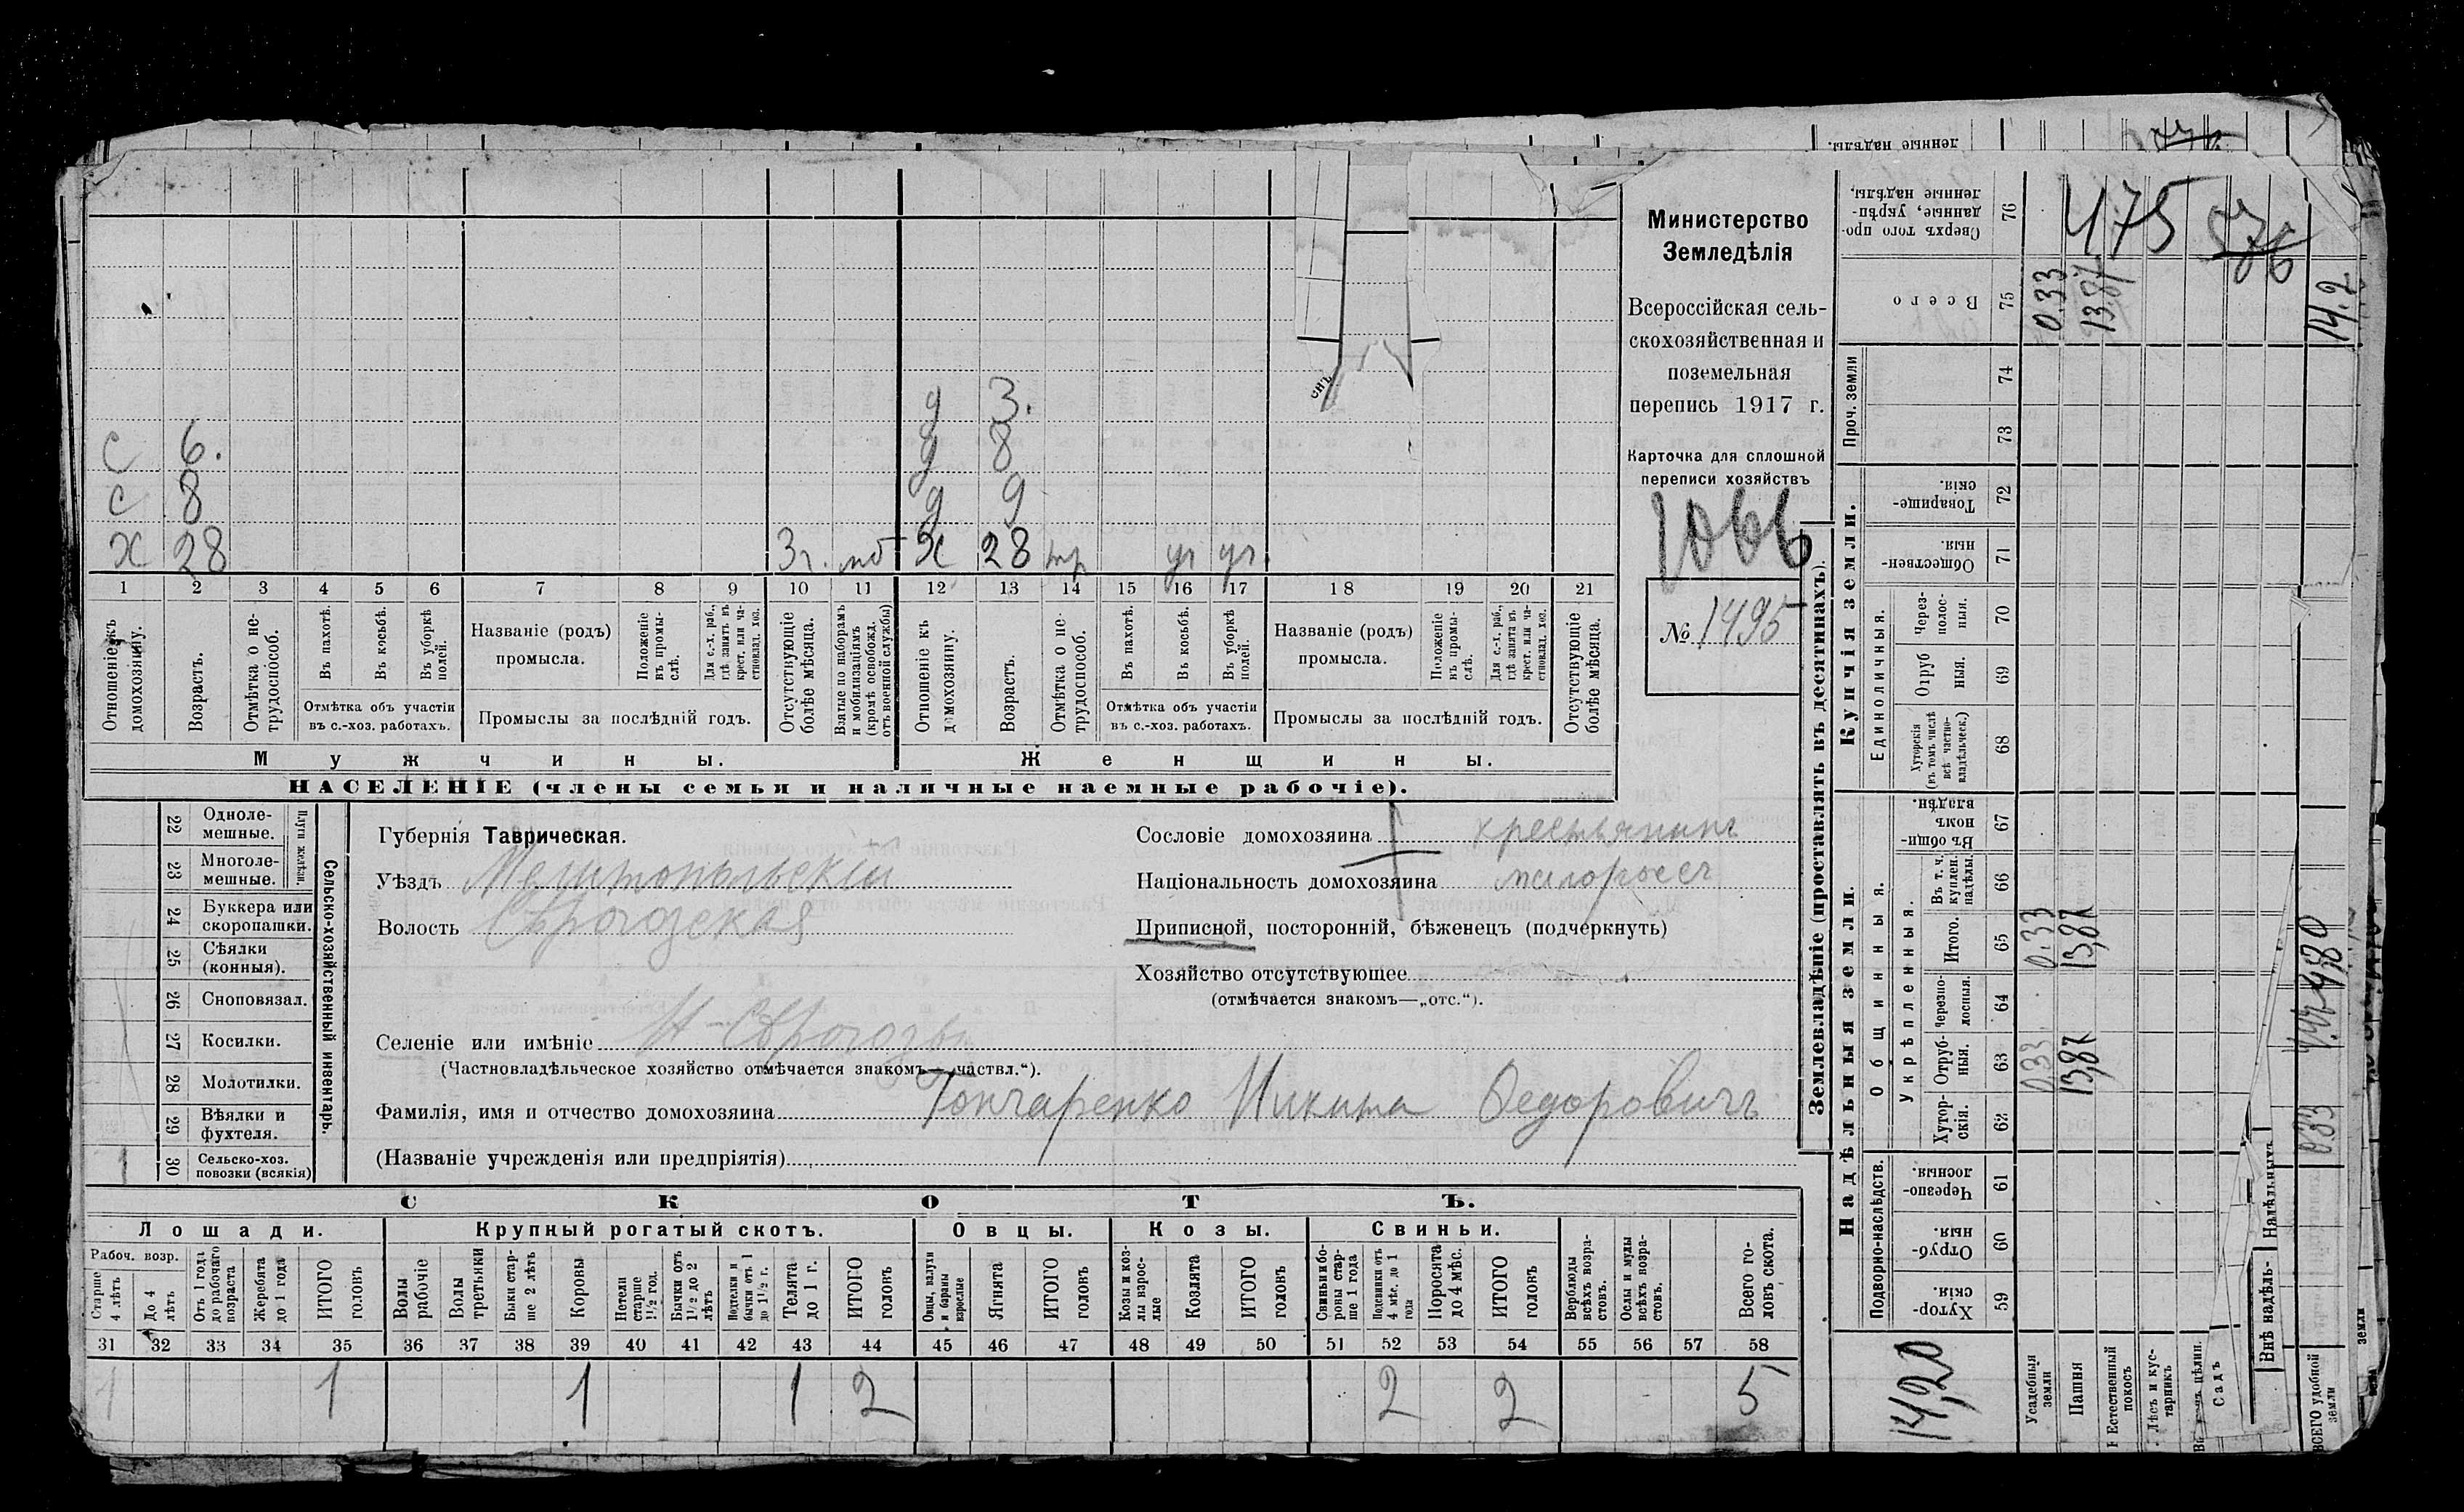 Министерство
Земледѣлія
Всероссійская сель-
скохозяйственная и
поземельная
перепись 1917 г.
Карточка для сплошной
переписи хозяйствъ
1066
№ 1495
д 3.
с 6. д 8
с 8 д 9
х 28 3г. мб х 28 тр уч уч.
1 2 3 4 5 6 7 8 9 10 11 12 13 14 15 16 17 18 19 20 21
Отношеніе къ домохозяину.
Возрастъ.
Отмѣтка о не-трудоспособ.
Въ пахотѣ.
Въ косьбѣ.
Въ уборкѣ полей.
Отмѣтка объ участіи въ с.-хоз. работахъ.
Названіе (родъ) промысла.
Положеніе въ промы-слѣ.
Для с.-х. раб., гдѣ занятъ въ крест. или ча-стновлад. хоз.
Промыслы за послѣдній годъ.
Отсутствующіе болѣе мѣсяца.
Взятые по наборамъ и мобилизаціямъ (кромѣ освобожд. отъ военной службы)
Отношеніе къ домохозяину.
Возрастъ.
Отмѣтка о не-трудоспособ.
Въ пахотѣ.
Въ косьбѣ.
Въ уборкѣ полей.
Отмѣтка объ участіи въ с.-хоз. работахъ.
Названіе (родъ) промысла.
Положеніе въ промы-слѣ.
Для с.-х. раб., гдѣ занята въ крест. или ча-стновлад. хоз.
Промыслы за послѣдній годъ.
Отсутствующіе болѣе мѣсяца.
Мужчины. Женщины.
НАСЕЛЕНІЕ (члены семьи и наличные наемные рабочіе).
22 Одноле-мешные.
23 Многоле-мешные.
Плуги желѣзн.
24 Буккера или скоропашки.
25 Сѣялки (конныя).
26 Сноповязал.
27 Косилки.
28 Молотилки.
29 Вѣялки и фухтеля.
1 30 Сельско-хоз. повозки (всякія)
Сельско-хозяйственный инвентарь.
Губернія Таврическая.
Уѣздъ Мелитопольскій
Волость Сѣрогозская
Селеніе или имѣніе Н-Сѣрогозы
(Частновладѣльческое хозяйство отмѣчается знакомъ—„частвл.“).
Фамилія, имя и отчество домохозяина Гончаренко Никита Федоровичъ
(Названіе учрежденія или предпріятія)
Сословіе домохозяина крестьянинъ
Національность домохозяина малороссъ
Приписной, посторонній, бѣженецъ (подчеркнуть)
Хозяйство отсутствующее
(отмѣчается знакомъ—„отс.“).
СКОТЪ.
Лошади. Крупный рогатый скотъ. Овцы. Козы. Свиньи.
Рабоч. возр.
Старше 4 лѣтъ
До 4 лѣтъ
Отъ 1 года до рабочаго возраста
Жеребята до 1 года
ИТОГО головъ
Волы рабочіе
Волы третьяки
Быки стар-ше 2 лѣтъ
Коровы
Нетели старше 1½ год.
Бычки отъ 1½ до 2 лѣтъ
Подтелки и бычки отъ 1 до 1½ г.
Телята до 1 г.
ИТОГО головъ
Овцы, валухи и бараны взрослые
Ягнята
ИТОГО головъ
Козы и коз-лы взрос-лые
Козлята
ИТОГО головъ
Свиньи и бо-ровы стар-ше 1 года
Подсвинки отъ 4 мѣс. до 1 года
Поросята до 4 мѣс.
ИТОГО головъ
Верблюды всѣхъ возра-стовъ.
Ослы и мулы всѣхъ возра-стовъ.
Всего го-ловъ скота.
31 32 33 34 35 36 37 38 39 40 41 42 43 44 45 46 47 48 49 50 51 52 53 54 55 56 57 58
1 1 1 1 2 2 2 5
Землевладѣніе (проставлять въ десятинахъ).
Купчія земли.
Надѣльныя земли.
Проч. земли
Единоличныя.
Общинныя.
Укрѣпленныя.
Подворно-наслѣдств.
Сверхъ того про-данные, укрѣп-ленные надѣлы. 76 475
Всего 75 0.33 13.87 14.2
74
73
Товарище-скія. 72
Обществен-ныя. 71
Через-полос-ныя. 70
Отруб ныя. 69
Хуторскія (въ томъ числѣ всѣ частно-владѣльческ.) 68
Въ общин-номъ владѣн. 67
Въ т. ч. куплен. надѣлы. 66
Итого. 65 0.33 13,87
Черезпо-лосныя. 64
Отруб-ныя. 63 0.33 13,87
Хутор-скія. 62
Черезпо-лосныя. 61
Отруб-ныя. 60
Хутор-скія. 59
14,20
Усадебныя земли
Пашня
Естественный покосъ
Лѣсъ и кус-тарникъ
Садъ
Внѣ надѣль-
Надѣльныхъ
ВСЕГО удобной земли
земли